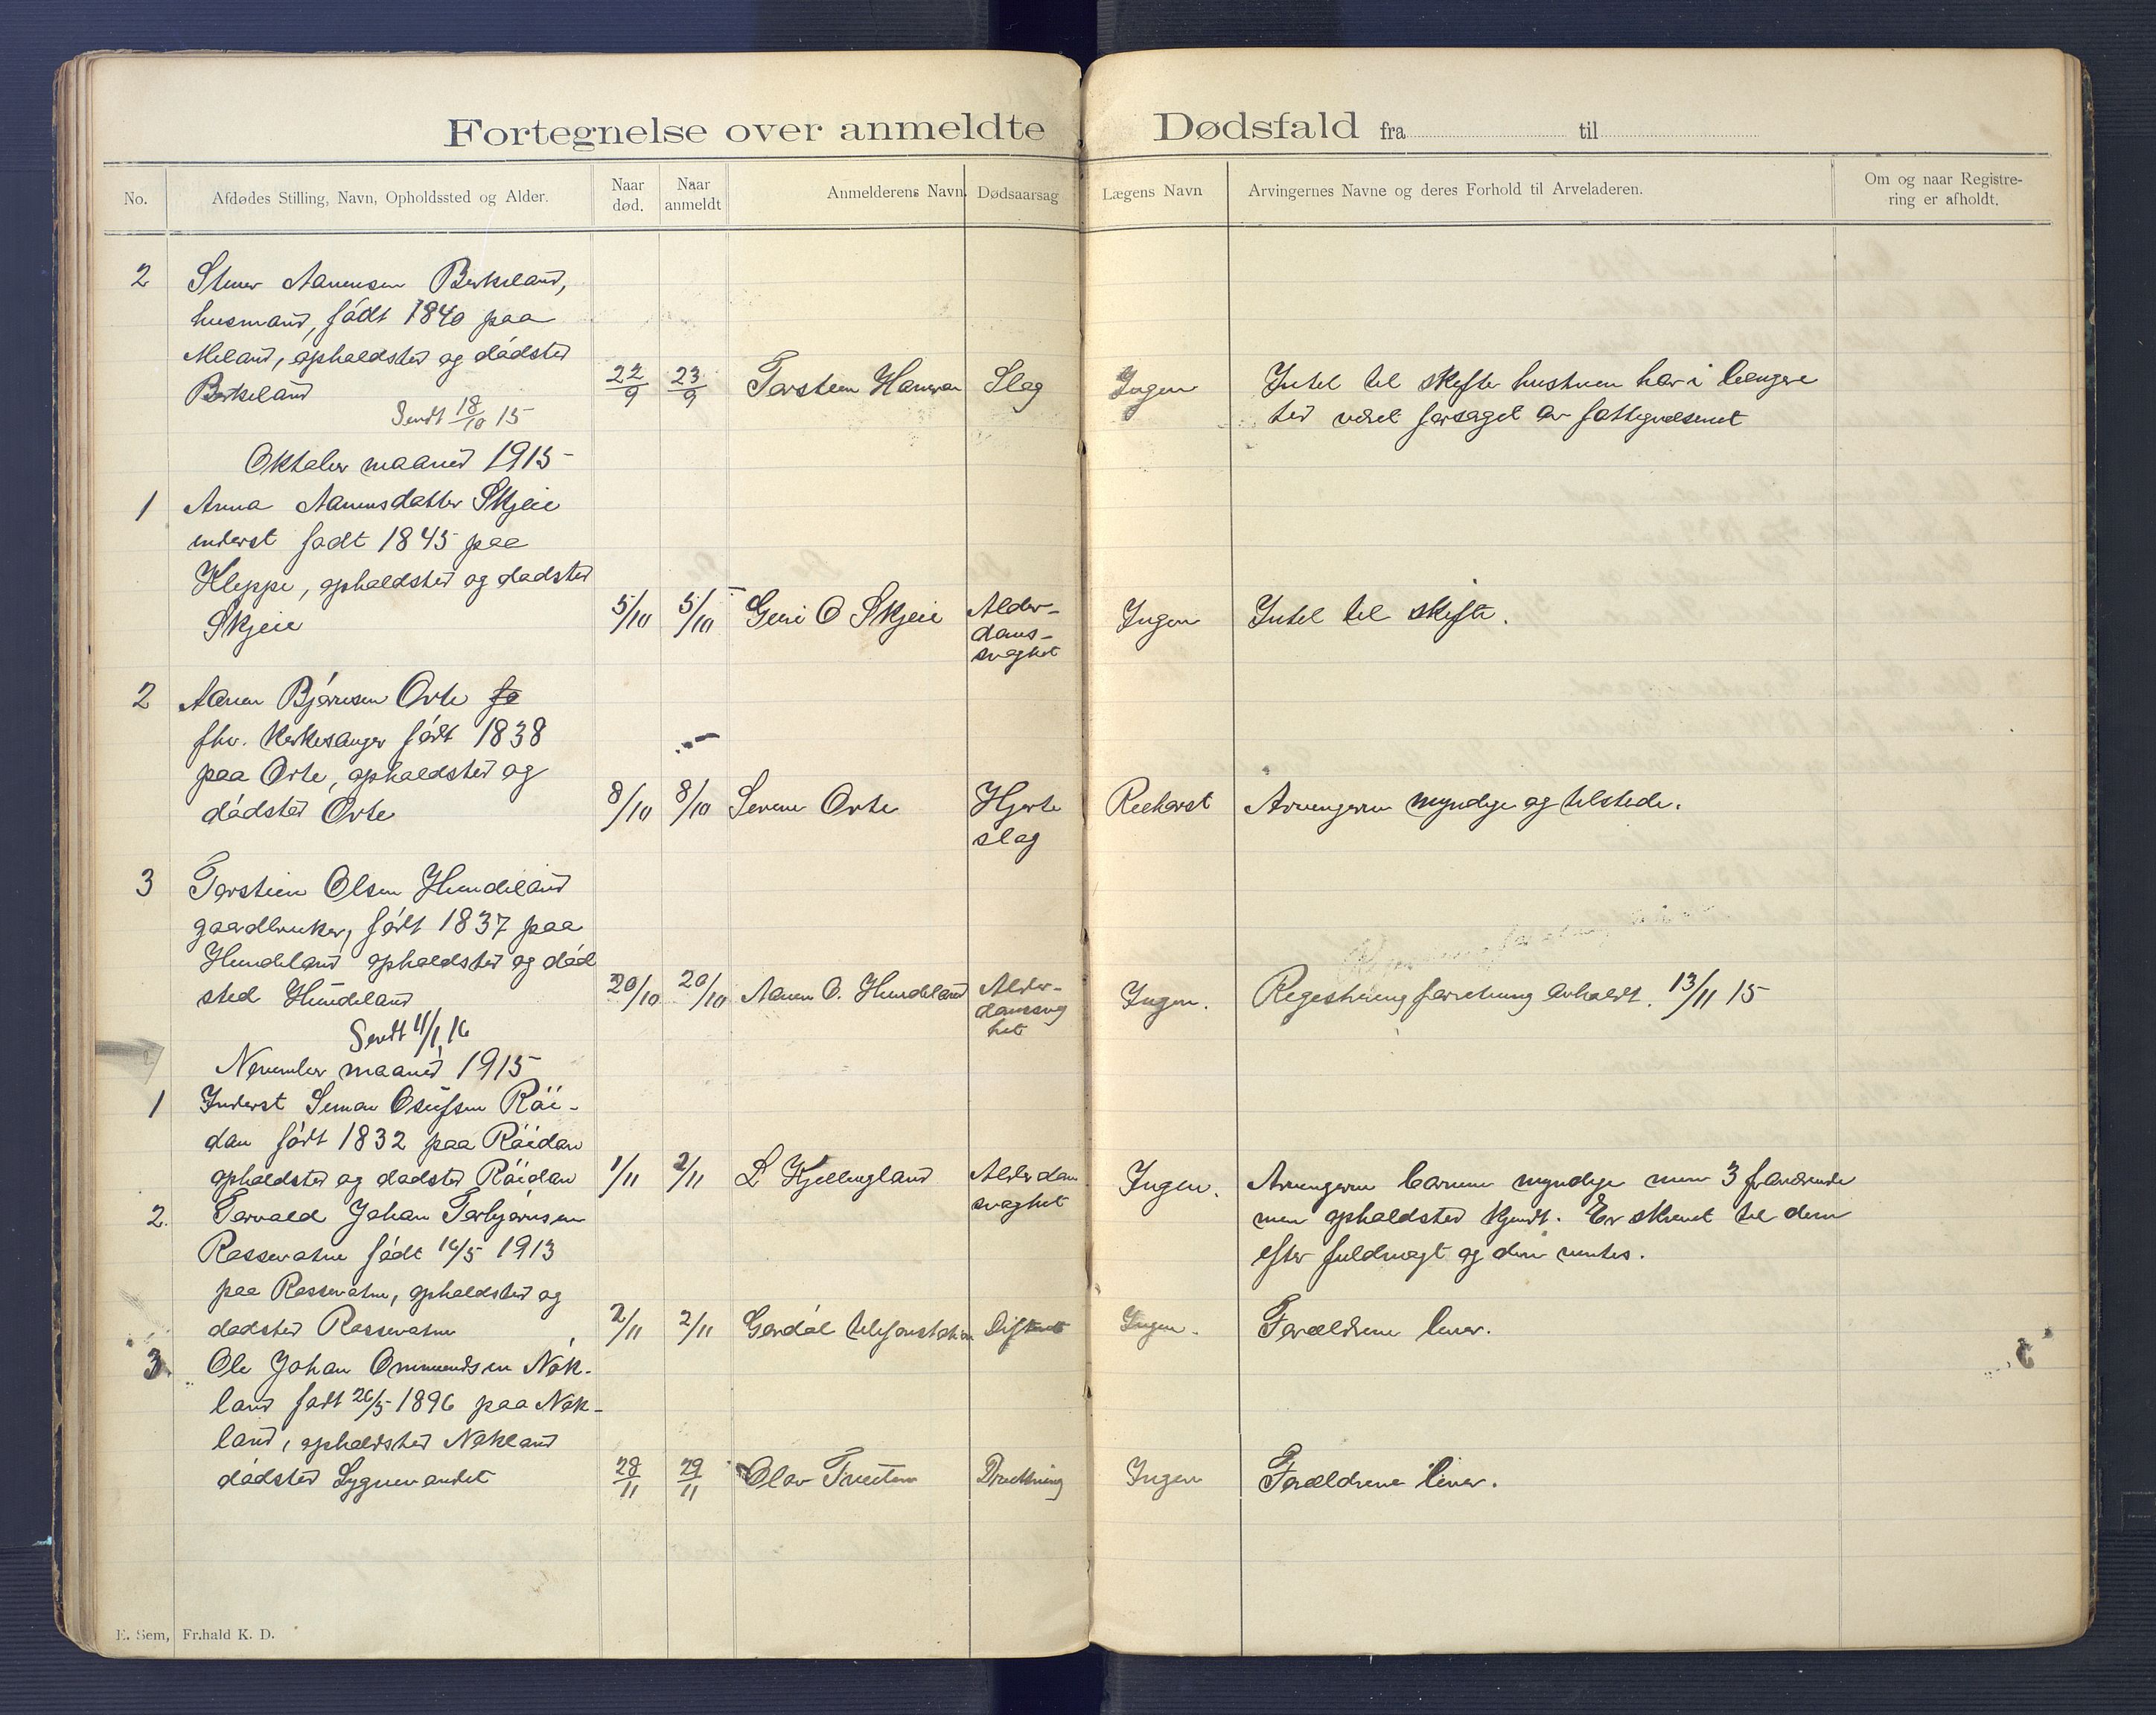 Fortegnelse over anmeldte Dødsfald fra til
No. Afdødes Stilling, Navn, Opholdssted og Alder. Naar død. Naar anmeldt Anmelderens Navn. Dødsaarsag Lægens Navn Arvingernes Navne og deres Forhold til Arveladeren. Om og naar Registrering er afholdt.
2 Stener Aanensen Berkeland,
husmand, födt 1840 paa
Meland, opholdsted og dödsted
Berkeland 22/9 23/9 Torstein Hansen Slag Ingen Intet til skifte hustruen har i længere
tid været forsørget av fattigvæsenet
Sendt 18/10 15
Oktober maaned 1915
1 Anna Aanensdatter Skjeie
inderst födt 1845 paa
Kleppe, opholdsted og dödsted
Skjeie 5/10 5/10 Geri O Skjeie Alder-
doms-
svaghet Ingen Intet til skifte.
2 Aanen Björnsen Orte fö
fhv. Kirkesanger födt 1838
paa Orte, opholdsted og
dödsted Orte 8/10 8/10 Severin Orte Hjerte
slag Reehorst Arvingerne myndige og tilstede.
3 Torstein Olsen Hundeland
gaardbruker, födt 1837 paa
Hundeland opholdsted og död
sted Hundeland 20/10 20/10 Aanen O. Hundeland Alder-
domssvag
het Ingen. Registreringsforretning avholdt. 13/11 15
Sendt 11/1 16
November maaned 1915
1 Inderst Simon Osufsen Röi-
dan födt 1832 paa Röidan
opholdsted og dödsted Röidan 1/11 2/11 L Kjellingland Alderdom
svaghet Ingen. Arvingerne barnene myndige men 3 fraværende
men opholdsted kjendt. Er skrevet til dem
efter fuldmagt og den ventes.
2. Torvald Johan Torbjørnsen
Rossevatne födt 16/5 1913
paa Rossevatne, opholdsted og
dødsted Rossevatne 2/11 2/11 telefonstation Ingen. Forældrene lever.
3. Ole Johan Ommundsen Nök-
land födt 26/5 1896 paa Nök-
land, opholdsted Nökland
dödsted Lygnevandet 28/11 29/11 Olav Drukning Ingen Forældrene lever.
E. Sem, Fr.hald K. D.